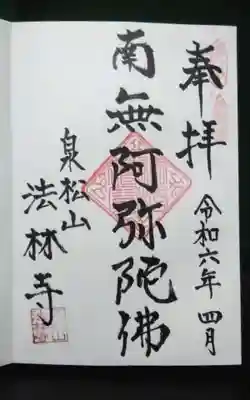 奉拝
令和六年四月
南無阿弥陀佛
泉松山
法林寺